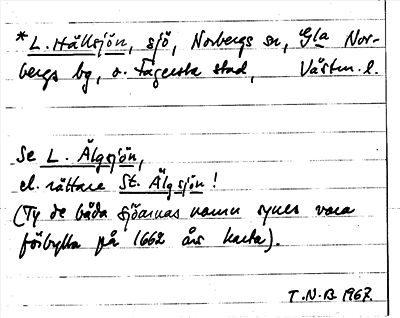 * L. Hällsjön, sjö, Norbergs sn, Gla Nor-
bergs bg, o. Fagersta stad, Västm. l.
Se L. Älgsjön,
el. rättare St. Älgsjön!
(Ty de båda sjöarnas namn synes vara
förbytta på 1662 års karta).
T.N.B. 1967.